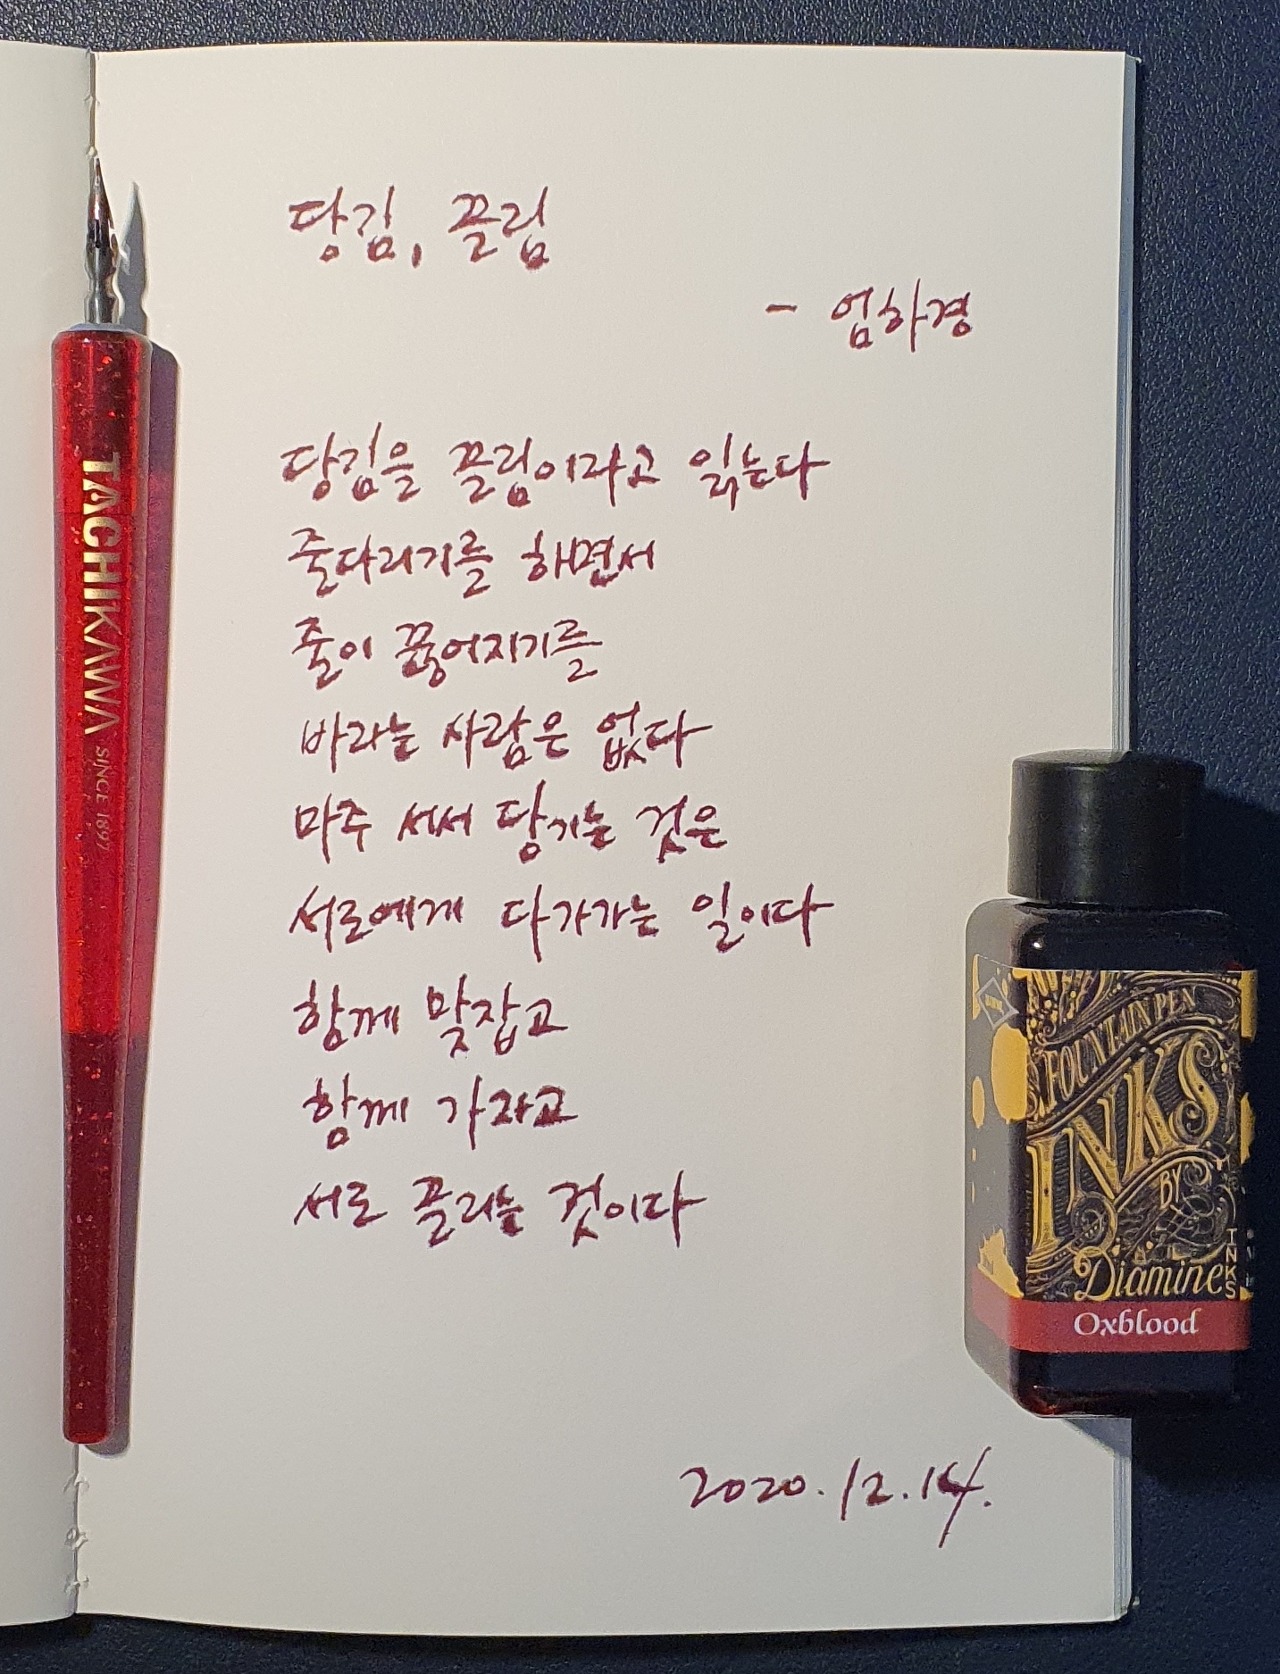 당김, 끌림
- 엄하경
당김을 끌림이라고 읽는다
줄다리기를 해면서
줄이 끊어지기를
바라는 사람은 없다
마주 서서 당기는 것은
서로에게 다가가는 일이다
함께 맞잡고
함께 가자고
서로 끌리는 것이다
2020.12.14.
TACHIKAWA SINCE 1897
FOUNTAIN PEN
INKS
BY
Diamine
INKS
Oxblood